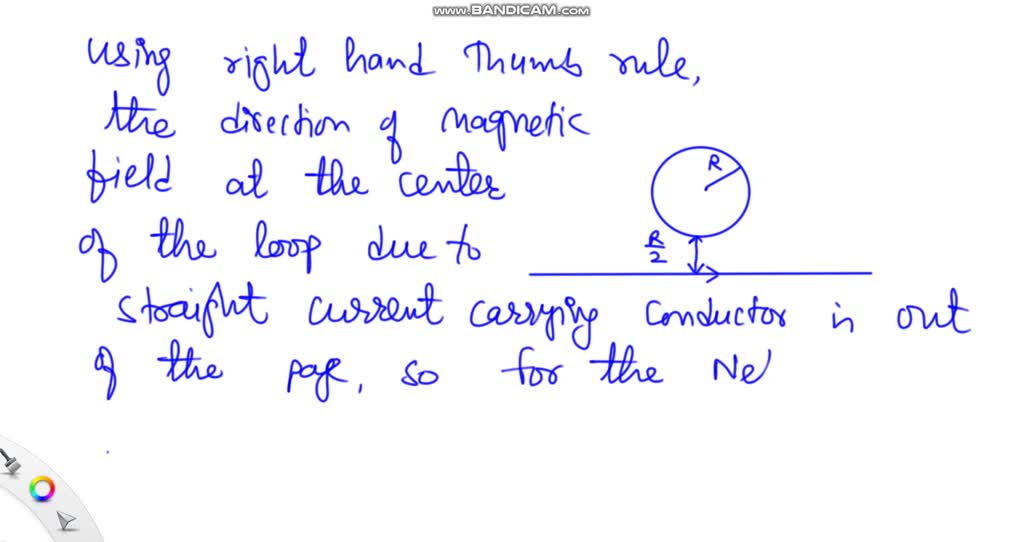 www.BANDICAM.com
using right hand Thumb rule,
the direction of magnetic
field at the center
R
of the loop due to
R/2
straight current carrying conductor is out
of the page, so for the Ne